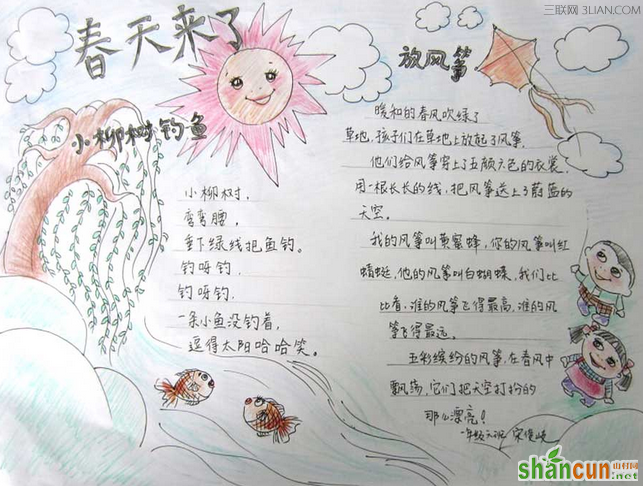 三联网 3LIAN.COM
春天来了
放风筝
小柳树钓鱼
小柳树，
弯弯腰，
垂下绿线把鱼钓。
钓呀钓，
钓呀钓，
一条小鱼没钓着，
逗得太阳哈哈笑。
暖和的春风吹绿了
草地，孩子们在草地上放起了风筝。
他们给风筝穿上了五颜六色的衣裳，
用一根长长的线，把风筝送上了蔚蓝的
天空。
我的风筝叫黄蜜蜂，你的风筝叫红
蜻蜓，他的风筝叫白蝴蝶，我们比一
比看，谁的风筝飞得最高，谁的风
筝飞得最远。
五彩缤纷的风筝，在春风中
飘荡，它们把天空打扮的
那么漂亮！
一年级六班
shancun
山村网
.net